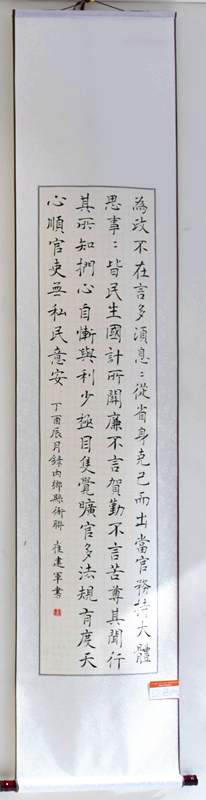 為政不在言多須息〻從省身克己而出當官務持大體
思事〻皆民生國計所關廉不言貧勤不言苦尊其聞行
其所知捫心自慚與利少極目隻覺曠官多法規有度天
心順官吏無私民意安 丁酉辰月錄内鄉縣衙聯 崔建軍書